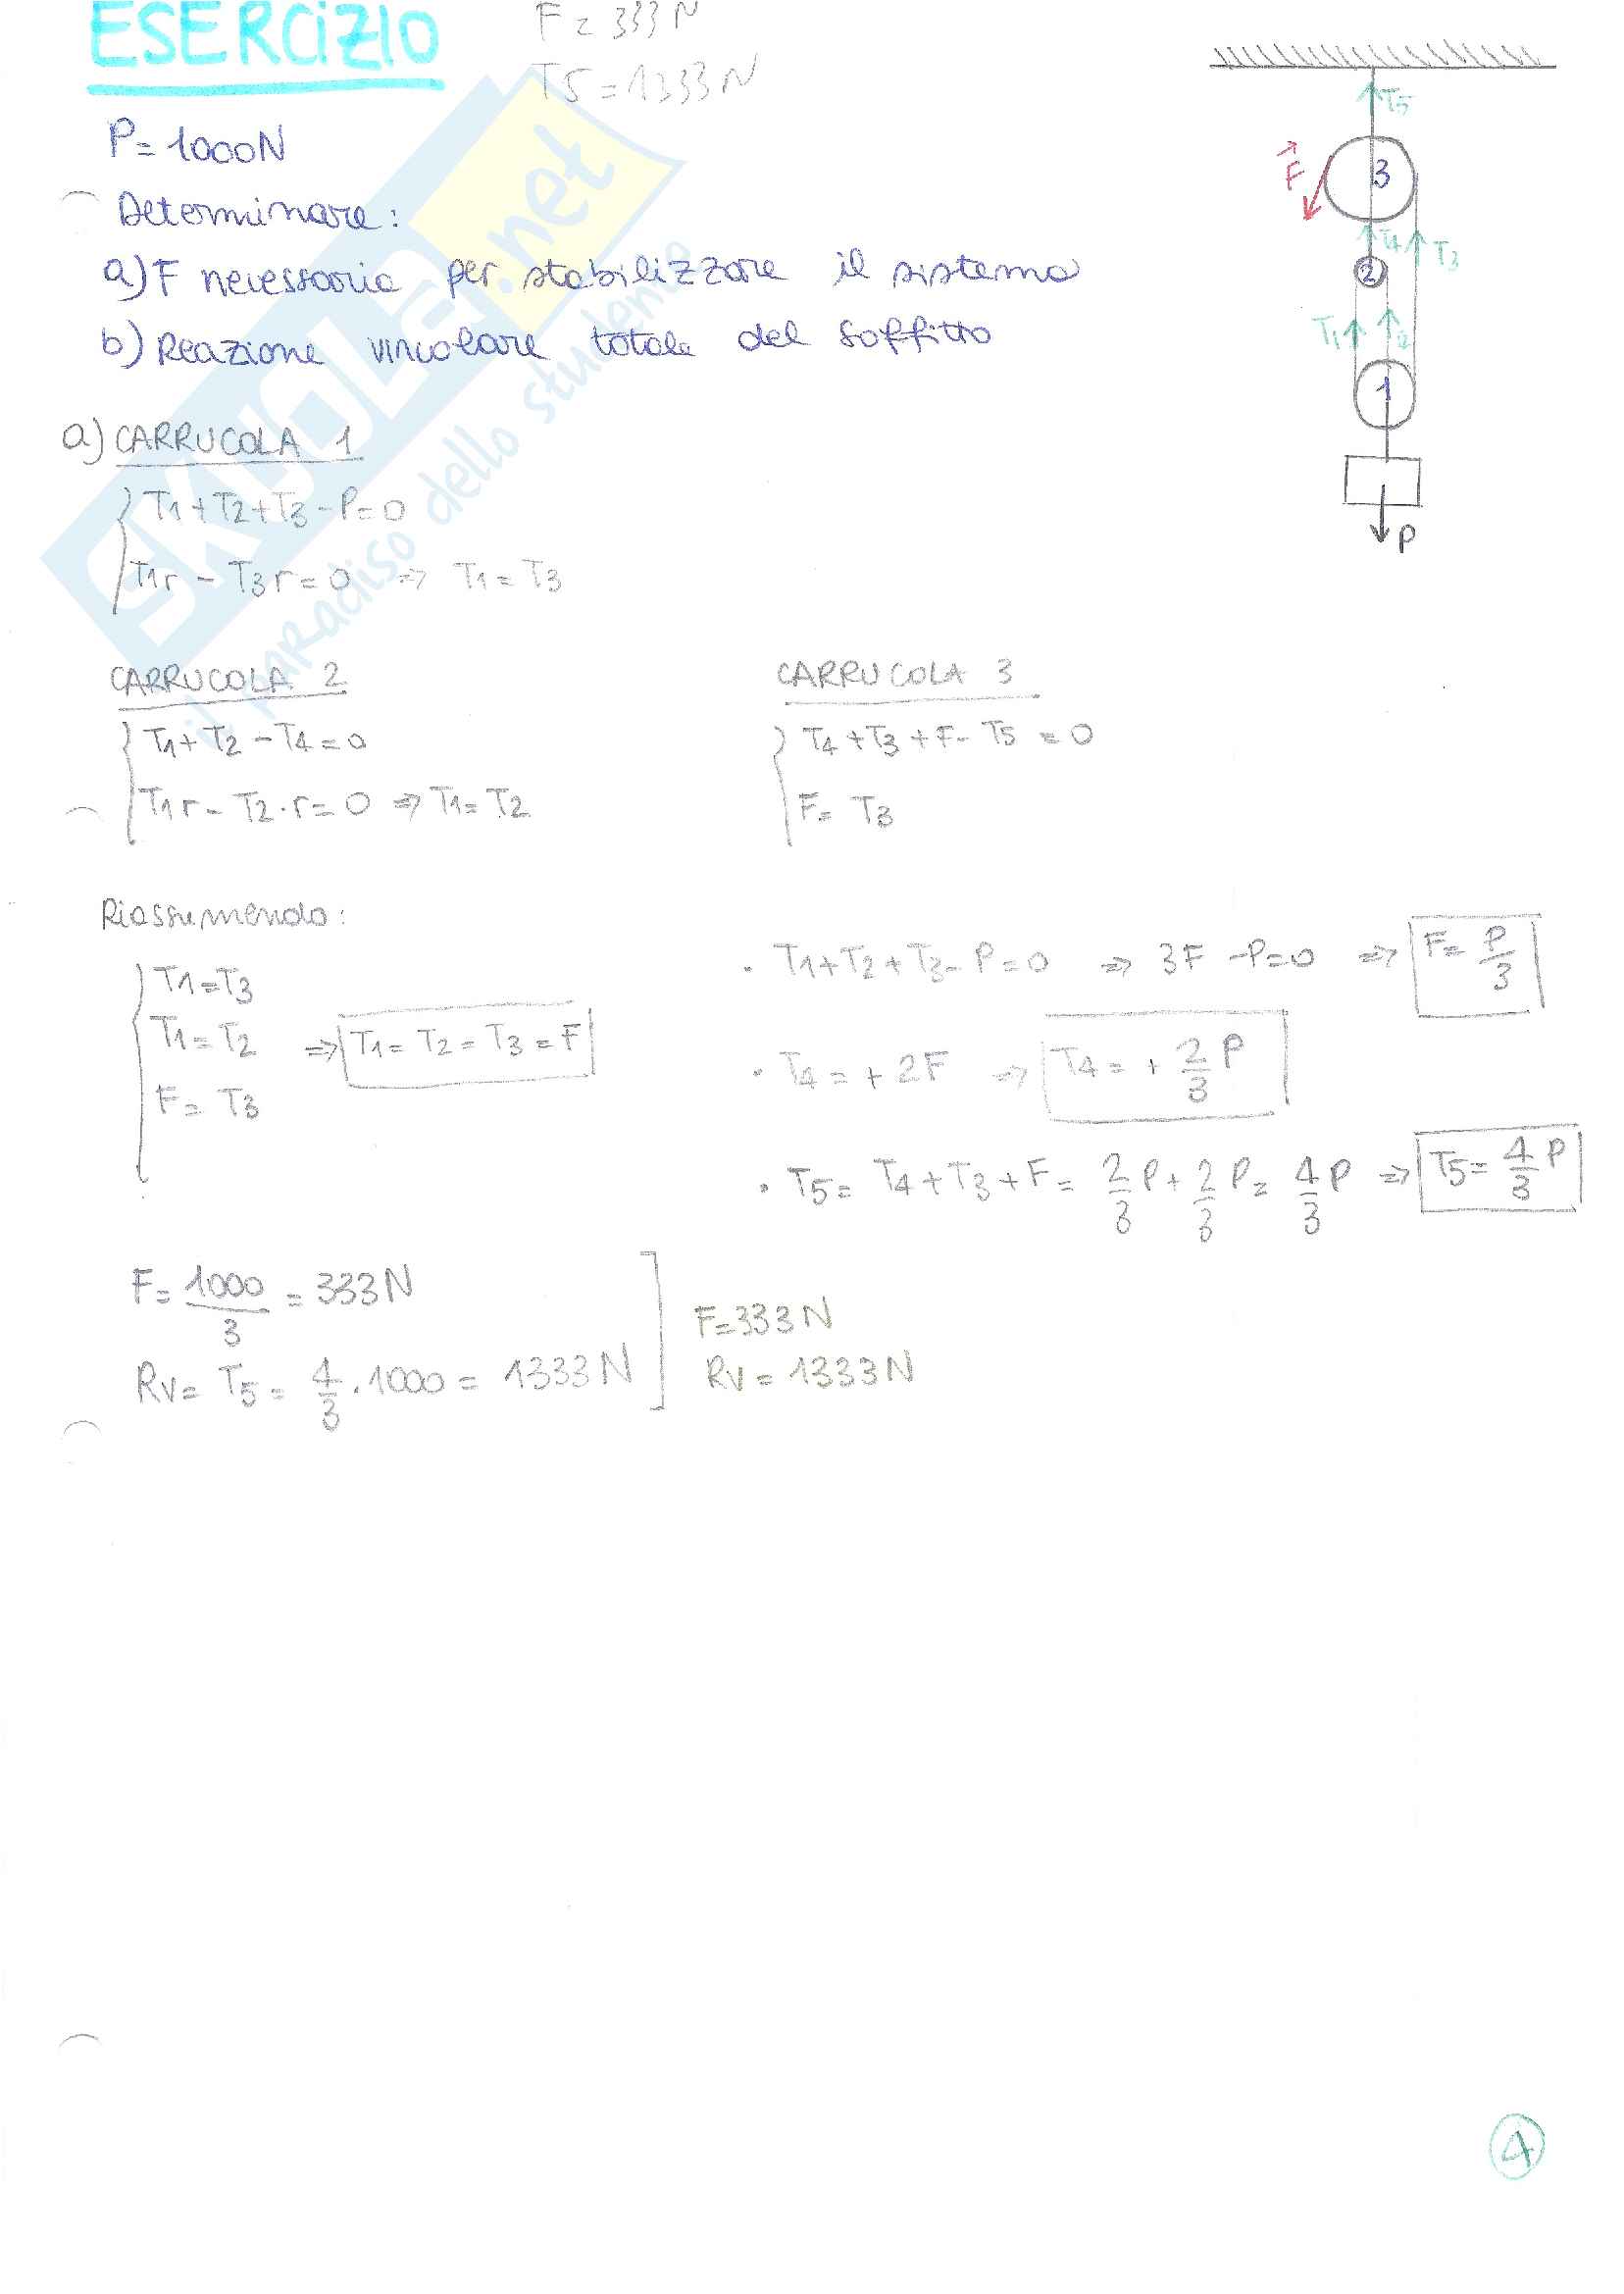 ESERCIZIO
F = 333 N
T5 = 1333 N
P = 1000N
Determinare:
a) F necessaria per stabilizzare il sistema
b) Reazione vincolare totale del soffitto
T5
F
3
T4
T3
2
T1
2
1
P
a) CARRUCOLA 1
T1 + T2 + T3 - P = 0
T1r - T3r = 0 => T1 = T3
CARRUCOLA 2
T1 + T2 - T4 = 0
T1r - T2·r = 0 => T1 = T2
CARRUCOLA 3
T4 + T3 + F - T5 = 0
F = T3
Riassumendo:
T1 = T3
T1 = T2 => T1 = T2 = T3 = F
F = T3
· T1 + T2 + T3 - P = 0 => 3F - P = 0 => F = P/3
· T4 = + 2F => T4 = + 2/3 P
· T5 = T4 + T3 + F = 2/3 P + 2/3 P = 4/3 P => T5 = 4/3 P
F = 1000/3 = 333N
Rv = T5 = 4/3 · 1000 = 1333N
F = 333N
Rv = 1333N
4
SKUOLA.net
il paradiso dello studente